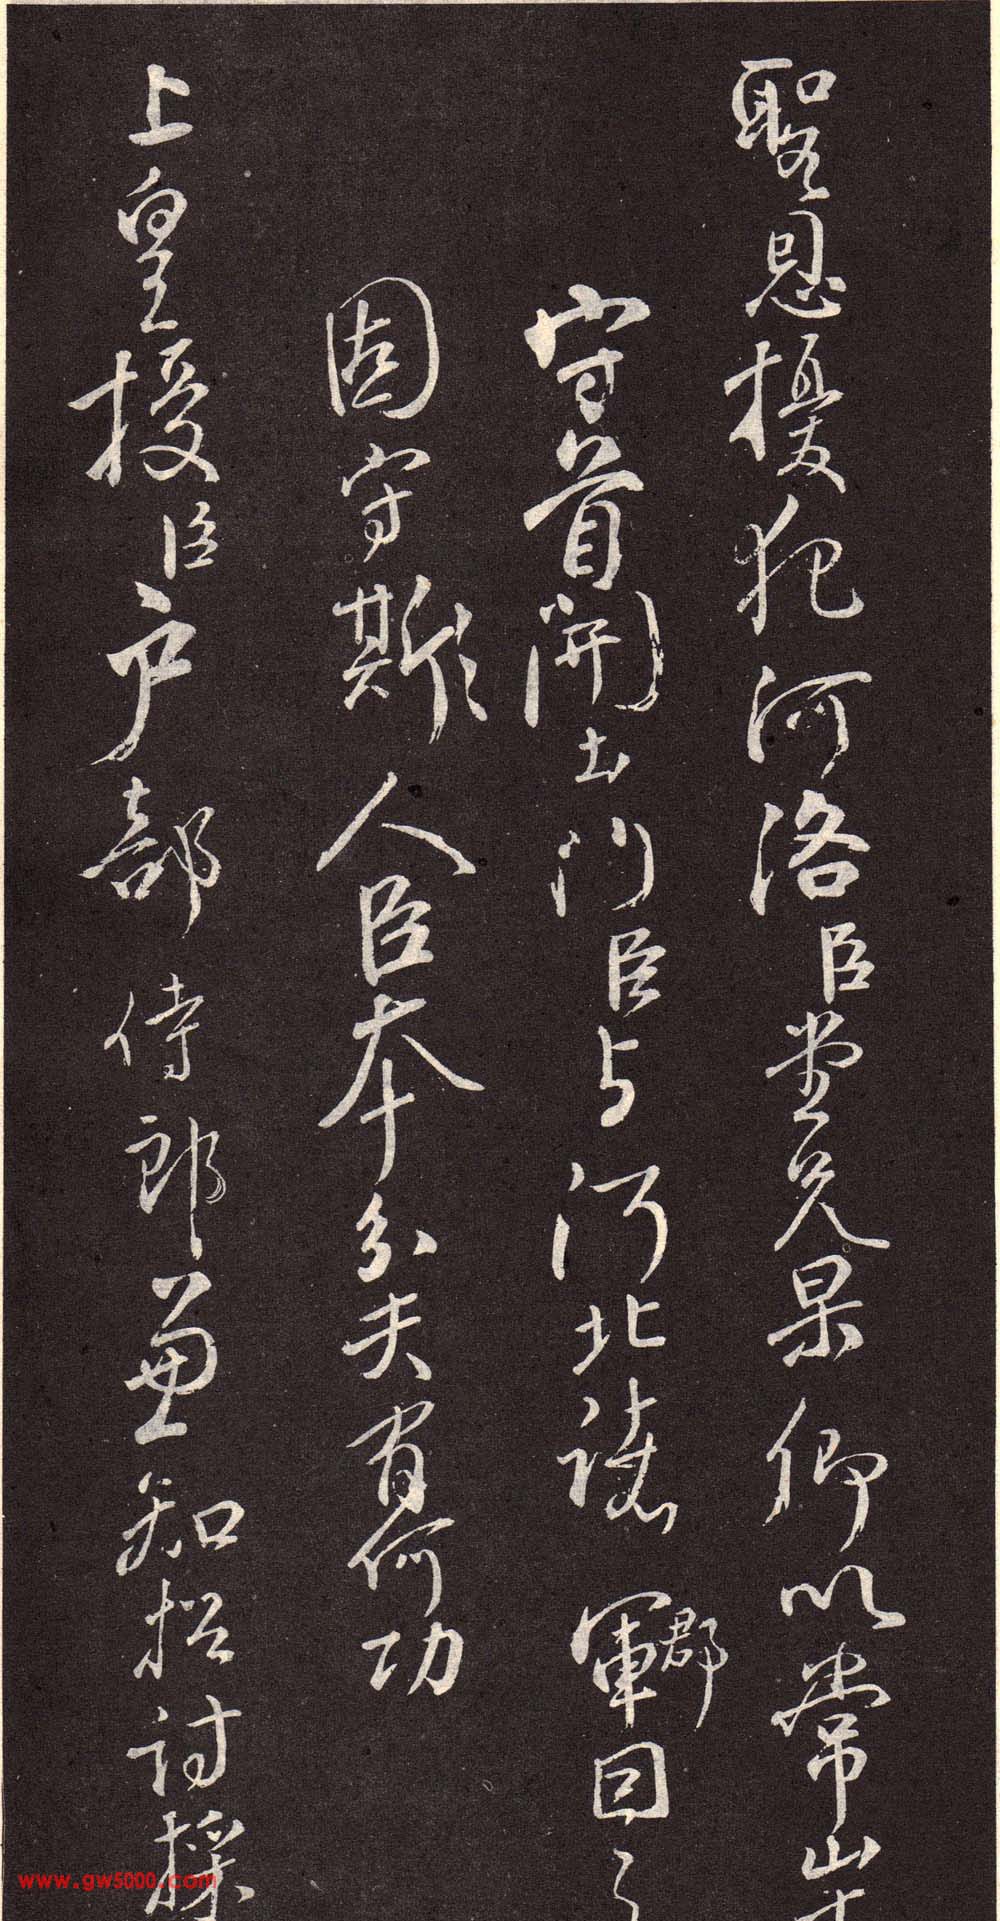 聖恩擾犯河洛臣堂兄杲卿以常山
守首開土門臣与河北諸軍郡因之
固守斯人臣本分夫有何功
上皇授臣户部侍郎兼知招討採
www.gw5000.com